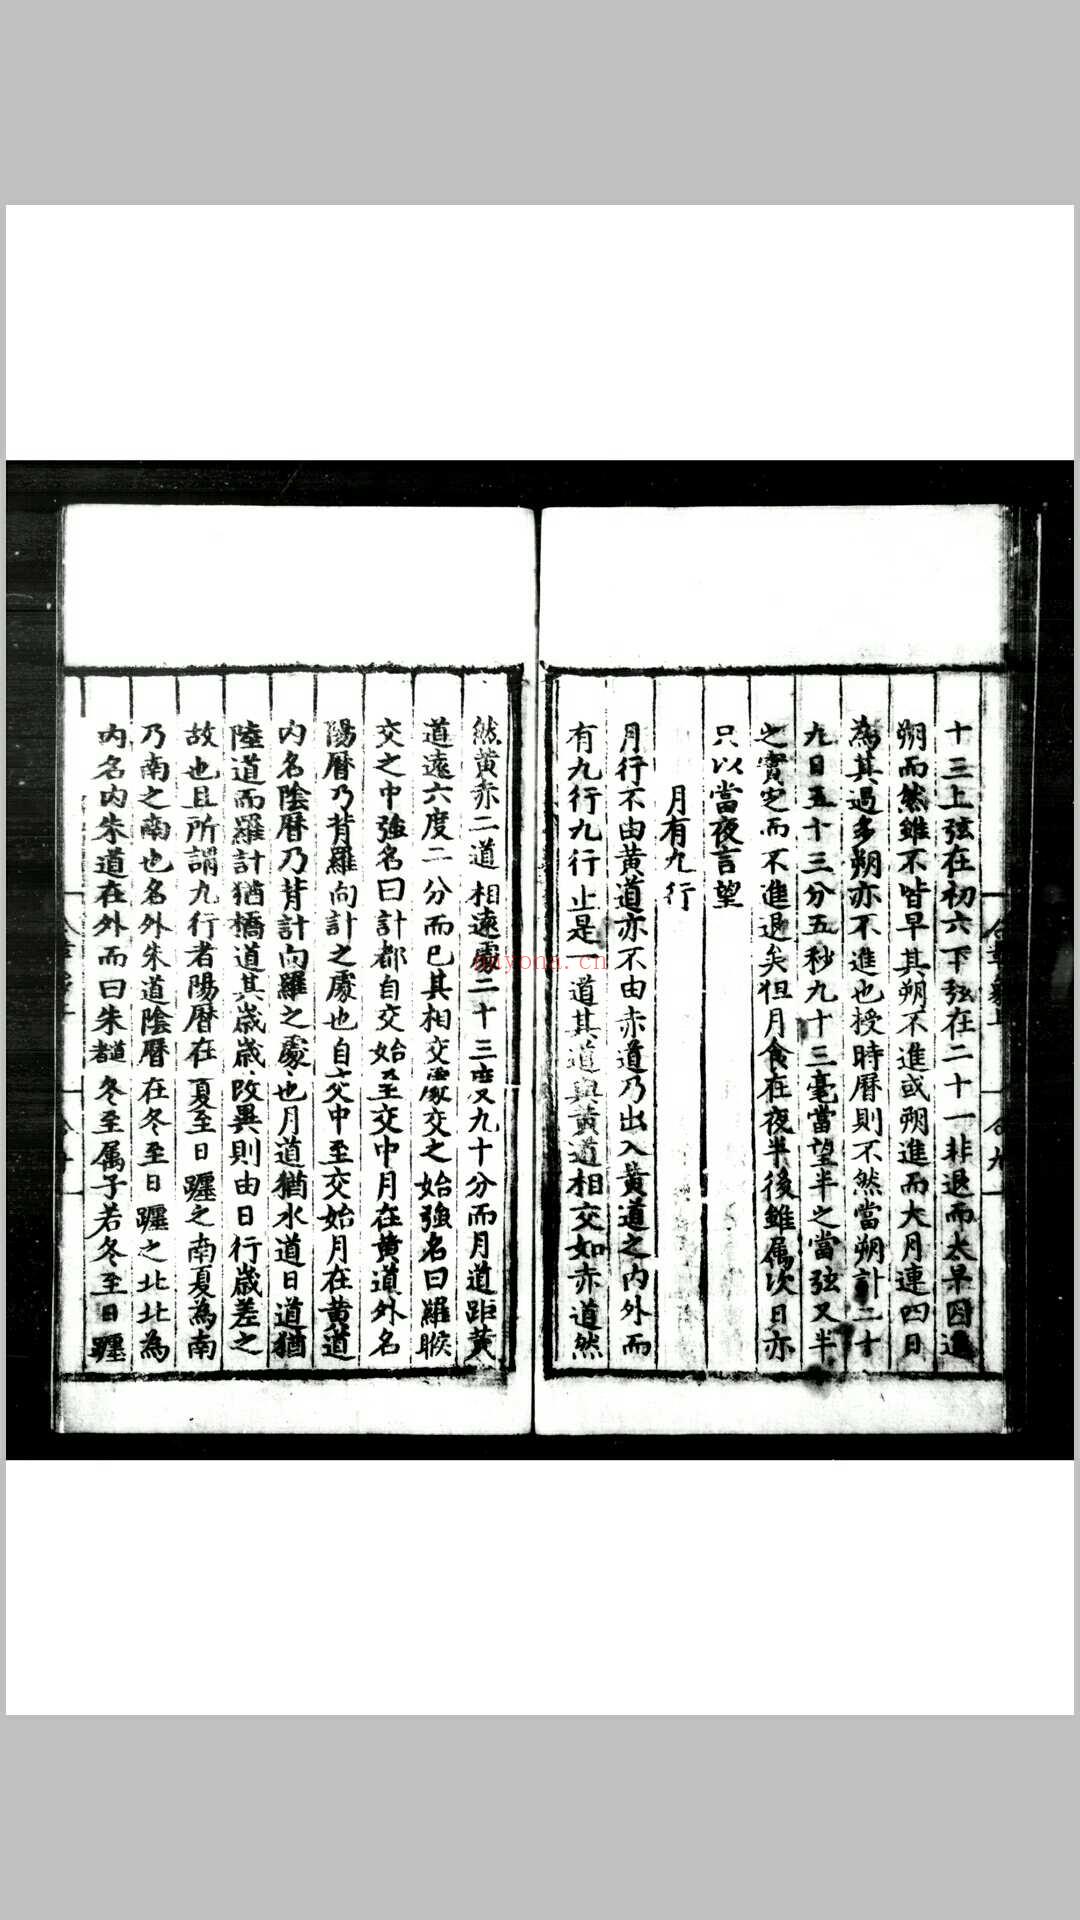 十三上弦在初六下弦在二十一非退而太早因進
朔而然雖不皆早其朔不進或朔進而大月連四日
為其過多朔亦不進也授時曆則不然當朔計二十
九日五十三分五秒九十三毫當望半之當弦又半
之實定而不進退矣但月食在夜半後雖属次日亦
只以當夜言望
月有九行
月行不由黃道亦不由赤道乃出入黃道之内外而
有九行九行止是 道其道與黃道相交如赤道然
然黃赤二道相遠處二十三度九十分而月道距黃
道遠六度二分而已其相交處交之始強名曰羅睺
交之中強名曰計都自交始至交中月在黃道外名
陽曆乃背羅向計之處也自交中至交始月在黃道
内名陰曆乃背計向羅之處也月道猶水道日道猶
陸道而羅計猶橋道其歲歲改異則由日行歲差之
故也且所謂九行者陽曆在夏至日躔之南夏為南
乃南之南也名外朱道陰曆在冬至日躔之北北為
内名内朱道在外而曰朱道者冬至属子若冬至日躔
nayona.cn